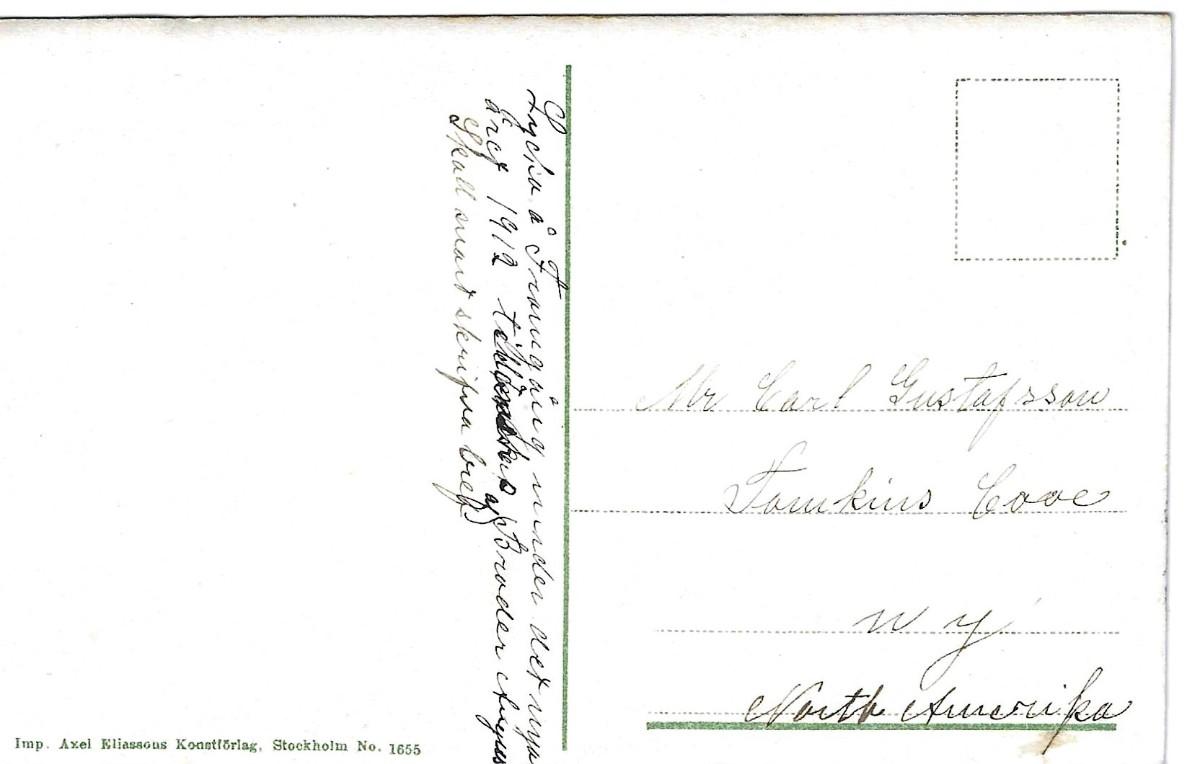 Lycka å Framgång under det nya
året 1912 tillönskas af Broder Augus
Skall snart skrifva bref
Mr Carl Gustafsson
Tomkins Cove
N Y
North Amerika
Imp. Axel Eliassons Konstförlag, Stockholm No. 1655